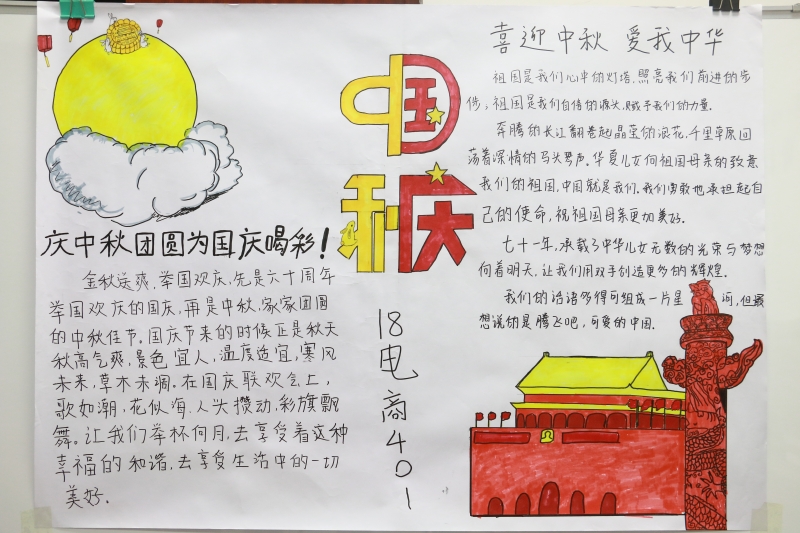 庆中秋团圆为国庆喝彩!
金秋送爽,举国欢庆,先是六十周年
举国欢庆的国庆,再是中秋,家家团圆
的中秋佳节。国庆节来的时候正是秋天
秋高气爽,景色宜人,温度适宜,寒风
未来,草木未凋。在国庆联欢会上,
歌如潮,花似海,人头攒动,彩旗飘
舞。让我们举杯向月,去享受着这种
幸福的和谐,去享受生活中的一切
美好.
中国
秋庆
18电商401
喜迎中秋 爱我中华
祖国是我们心中的灯塔,照亮我们前进的步
伐,祖国是我们自信的源头,赋予我们的力量.
奔腾的长江翻卷起晶莹的浪花,千里草原回
荡着深情的马头琴声。华夏儿女向祖国母亲的致意
我们的祖国,中国就是我们.我们勇敢地承担起自
己的使命,祝祖国母亲更加美好。
七十一年,承载了中华儿女无数的光荣与梦想
向着明天,让我们用双手创造更多的辉煌.
我们的话语多得可组成一片星河,但最
想说的是腾飞吧,可爱的中国.